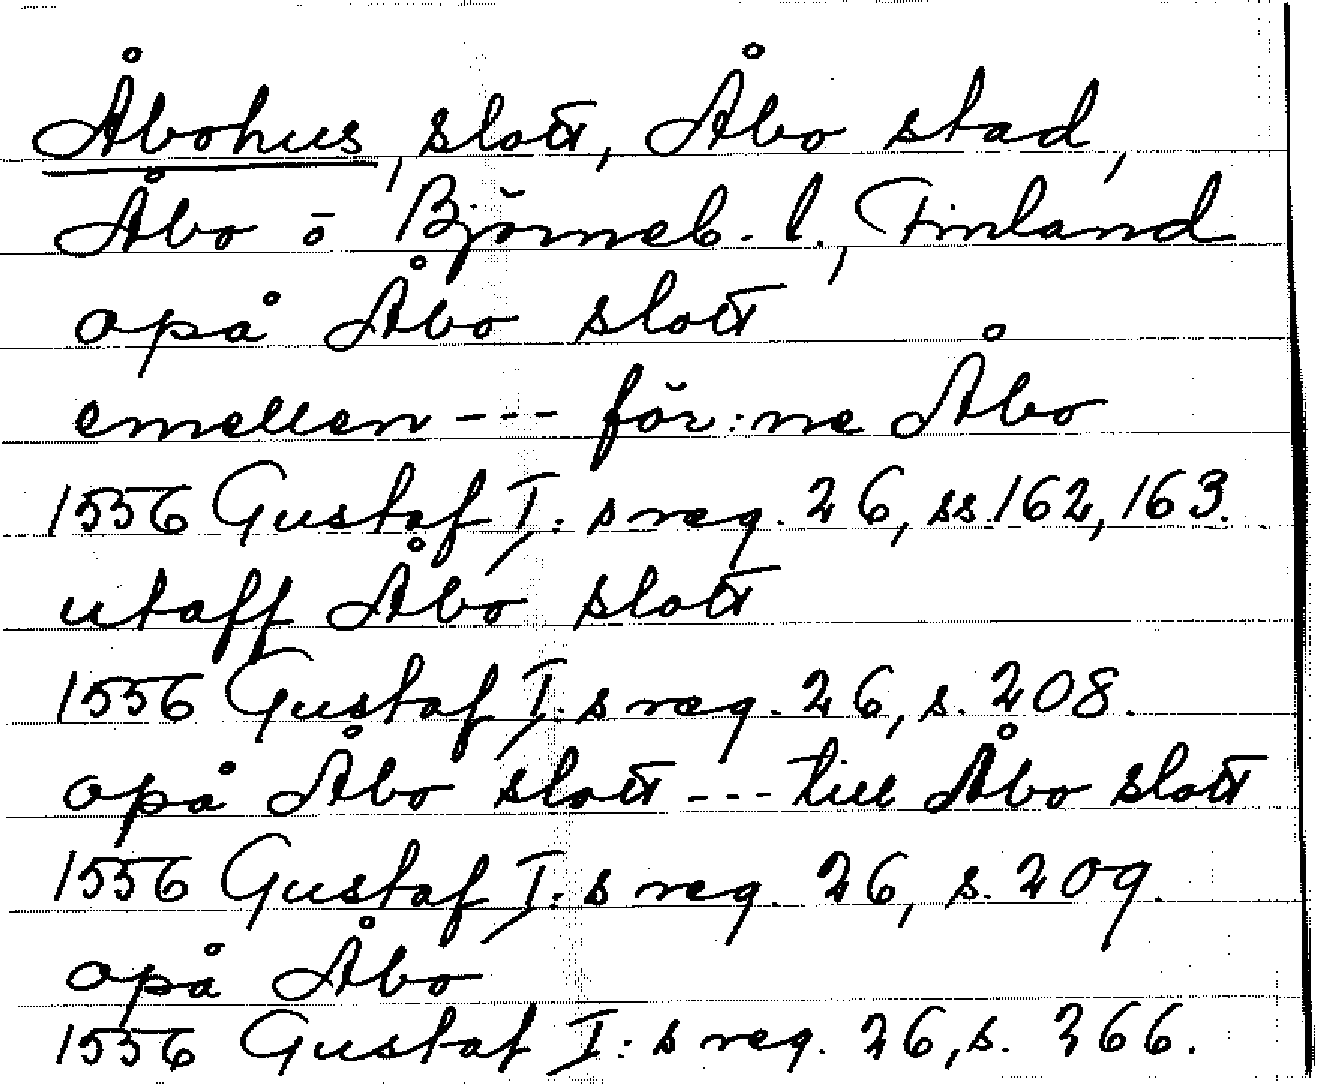 Åbohus, slott, Åbo stad,
Åbo o Björneb. l., Finland
opå Åbo slott
emellen --- för:ne Åbo
1556 Gustaf I:s reg. 26, ss. 162, 163.
utaff Åbo slott
1556 Gustaf I:s reg. 26, s. 208.
opå Åbo slott --- till Åbo slott
1556 Gustaf I:s reg. 26, s. 209.
opå Åbo
1556 Gustaf I:s reg. 26, s. 266.